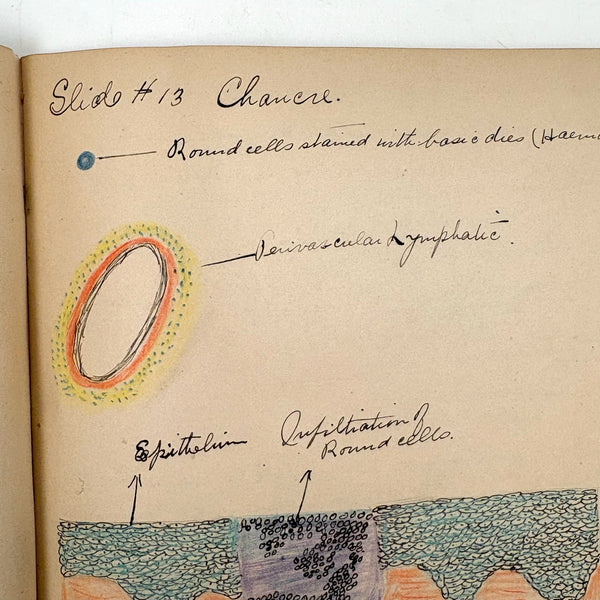 Slide # 13 Chancre.
Round cells stained with basic dies (Haem
Perivascular Lymphatic.
Epithelium
Infiltration of
Round cells.